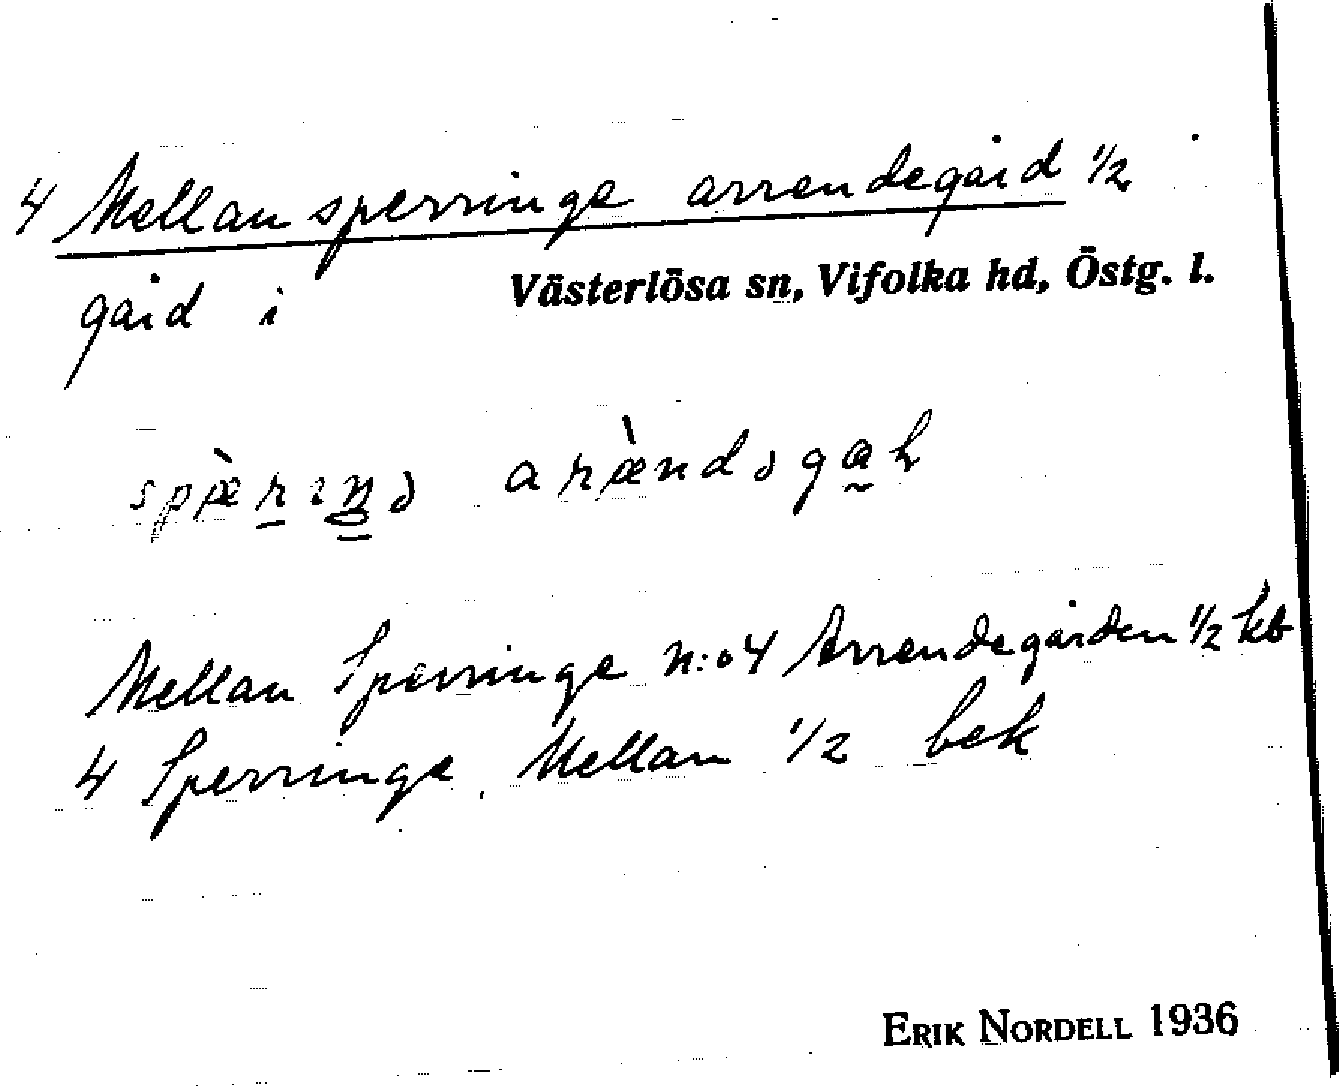 4 Mellansperringe arrendegård 1/2
gård i Västerlösa sn, Vifolka hd, Östg. l.
Mellan Sperringe n:o 4 Arrendegården 1/2 kb
4 Sperringe, Mellan 1/2 bek
ERIK NORDELL 1936